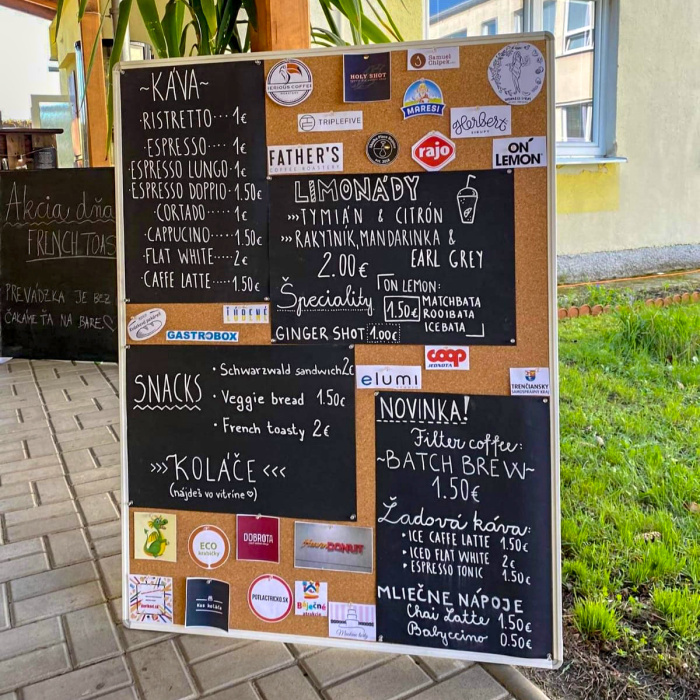 ~KÁVA~
·RISTRETTO····1€
·ESPRESSO····1€
·ESPRESSO LUNGO·1€
·ESPRESSO DOPPIO·1.50€
·CORTADO····1€
·CAPPUCINO···1.50€
·FLAT WHITE····2€
·CAFFE LATTE··1.50€
Akcia dňa
FRENCH TOAS
PREVÁDZKA JE BEZ
ČAKÁME ŤA NA BARE
SERIOUS COFFEE
HOLY SHOT
Samuel
Chipek
MARESI
TRIPLEFIVE
Herbert
SIRUPS
FATHER'S
COFFEE ROASTERY
rajo
ON
LEMON
LIMONÁDY
>>>TYMIÁN & CITRÓN
>>>RAKYTNÍK, MANDARINKA &
EARL GREY
2.00€
Špeciality
ON LEMON:
1.50€
MATCHBATA
ROOIBATA
ICEBATA
GINGER SHOT: 1.00€
GASTROBOX
elumi
coop
JEDNOTA
TRENČIANSKY
SAMOSPRÁVNY KRAJ
SNACKS
· Schwarzwald sandwich 2€
· Veggie bread 1.50€
· French toasty 2€
>>>KOLÁČE<<<
(nájdeš vo vitríne ♡)
NOVINKA!
Filter coffee:
~BATCH BREW~
1.50€
Ľadová káva:
• ICE CAFFE LATTE 1.50€
• ICED FLAT WHITE 2€
• ESPRESSO TONIC 1.50€
MLIEČNE NÁPOJE
Chai Latte 1.50€
Babyccino 0.50€
ECO
DOBROTA
DONUT
POTLACTRICKO.SK
Báječné